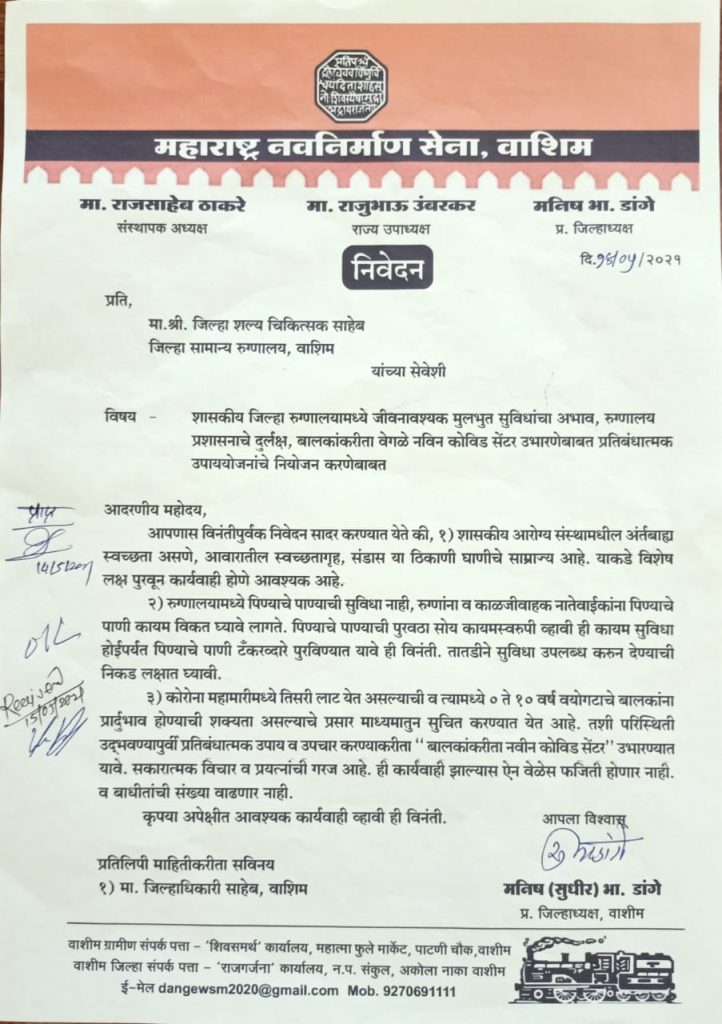 महाराष्ट्र नवनिर्माण सेना, वाशिम
मा. राजसाहेब ठाकरे
संस्थापक अध्यक्ष
मा. राजुभाऊ उंबरकर
राज्य उपाध्यक्ष
मनिष भा. डांगे
प्र. जिल्हाध्यक्ष
निवेदन
दि. /०५/२०२१
प्रति,
मा.श्री. जिल्हा शल्य चिकित्सक साहेब
जिल्हा सामान्य रुग्णालय, वाशिम
यांच्या सेवेशी
विषय - शासकीय जिल्हा रुग्णालयामध्ये जीवनावश्यक मुलभुत सुविधांचा अभाव, रुग्णालय
प्रशासनाचे दुर्लक्ष, बालकांकरीता वेगळे नविन कोविड सेंटर उभारणेबाबत प्रतिबंधात्मक
उपाययोजनांचे नियोजन करणेबाबत
आदरणीय महोदय,
आपणास विनंतीपुर्वक निवेदन सादर करण्यात येते की, १) शासकीय आरोग्य संस्थामधील अंर्तबाह्य
स्वच्छता असणे, आवारातील स्वच्छतागृह, संडास या ठिकाणी घाणीचे साम्राज्य आहे. याकडे विशेष
लक्ष पुरवून कार्यवाही होणे आवश्यक आहे.
२) रुग्णालयामध्ये पिण्याचे पाण्याची सुविधा नाही, रुग्णांना व काळजीवाहक नातेवाईकांना पिण्याचे
पाणी कायम विकत घ्यावे लागते. पिण्याचे पाण्याची पुरवठा सोय कायमस्वरुपी व्हावी ही कायम सुविधा
होईपर्यंत पिण्याचे पाणी टँकरव्दारे पुरविण्यात यावे ही विनंती. तातडीने सुविधा उपलब्ध करुन देण्याची
निकड लक्षात घ्यावी.
३) कोरोना महामारीमध्ये तिसरी लाट येत असल्याची व त्यामध्ये ० ते १० वर्ष वयोगटाचे बालकांना
प्रार्दुभाव होण्याची शक्यता असल्याचे प्रसार माध्यमातुन सुचित करण्यात येत आहे. तशी परिस्थिती
उद्भवण्यापुर्वी प्रतिबंधात्मक उपाय व उपचार करण्याकरीता " बालकांकरीता नवीन कोविड सेंटर" उभारण्यात
यावे. सकारात्मक विचार व प्रयत्नांची गरज आहे. ही कार्यवाही झाल्यास ऐन वेळेस फजिती होणार नाही.
व बाधीतांची संख्या वाढणार नाही.
कृपया अपेक्षीत आवश्यक कार्यवाही व्हावी ही विनंती.
आपला विश्वासू
प्राप्त
Received
15/05/2021
प्रतिलिपी माहितीकरीता सविनय
१) मा. जिल्हाधिकारी साहेब, वाशिम
मनिष (सुधीर) भा. डांगे
प्र. जिल्हाध्यक्ष, वाशीम
वाशीम ग्रामीण संपर्क पत्ता - 'शिवसमर्थ' कार्यालय, महात्मा फुले मार्केट, पाटणी चौक,वाशीम
वाशीम जिल्हा संपर्क पत्ता - 'राजगर्जना' कार्यालय, न.प. संकुल, अकोला नाका वाशीम
ई-मेल dangewsm2020@gmail.com Mob. 9270691111